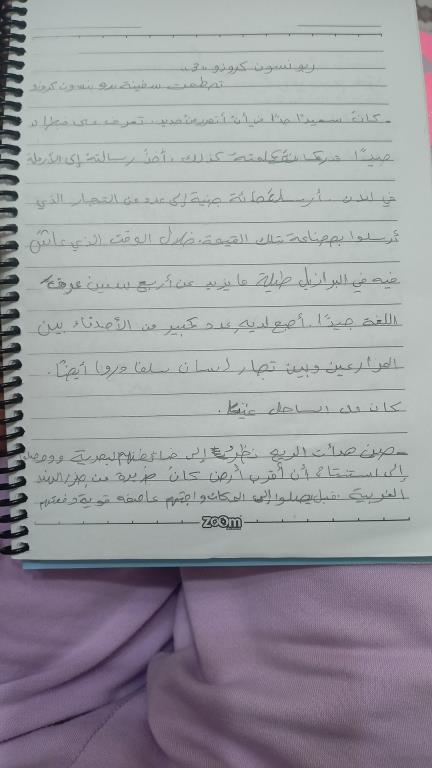 ربونسون كروزو «3»
تحطمت سفينة روبنسون كروزو
- كان سعيدًا جدًا من أن أنصرف من جديد. تعرف على
جيدًا وكان كذلك. أخذ رسالته إلى الأرملة
في لندن. أرسلت مائة جنية إلى عدد من التجار الذي
أرسلوا بضاعة بتلك القيمة. خلال الوقت الذي عاش
فيه في البرازيل طيلة ما يزيد عن أربع سنين عرف
اللغة جيدًا. أصبح لديه عدد كبير من الأصدقاء بين
المزارعين وبين تجار لسان سلفادورا أيضًا.
كان كل الساحل
- حين هدأت الريح نظروا إلى خرائطهم البحرية ووصلوا
إلى استنتاج أن أقرب أرض كان جزيرة من جزر الهند
الغربية. قبل يصلوا إلى المكان واجتهم عاصفه قوية دفعتهم
zoom